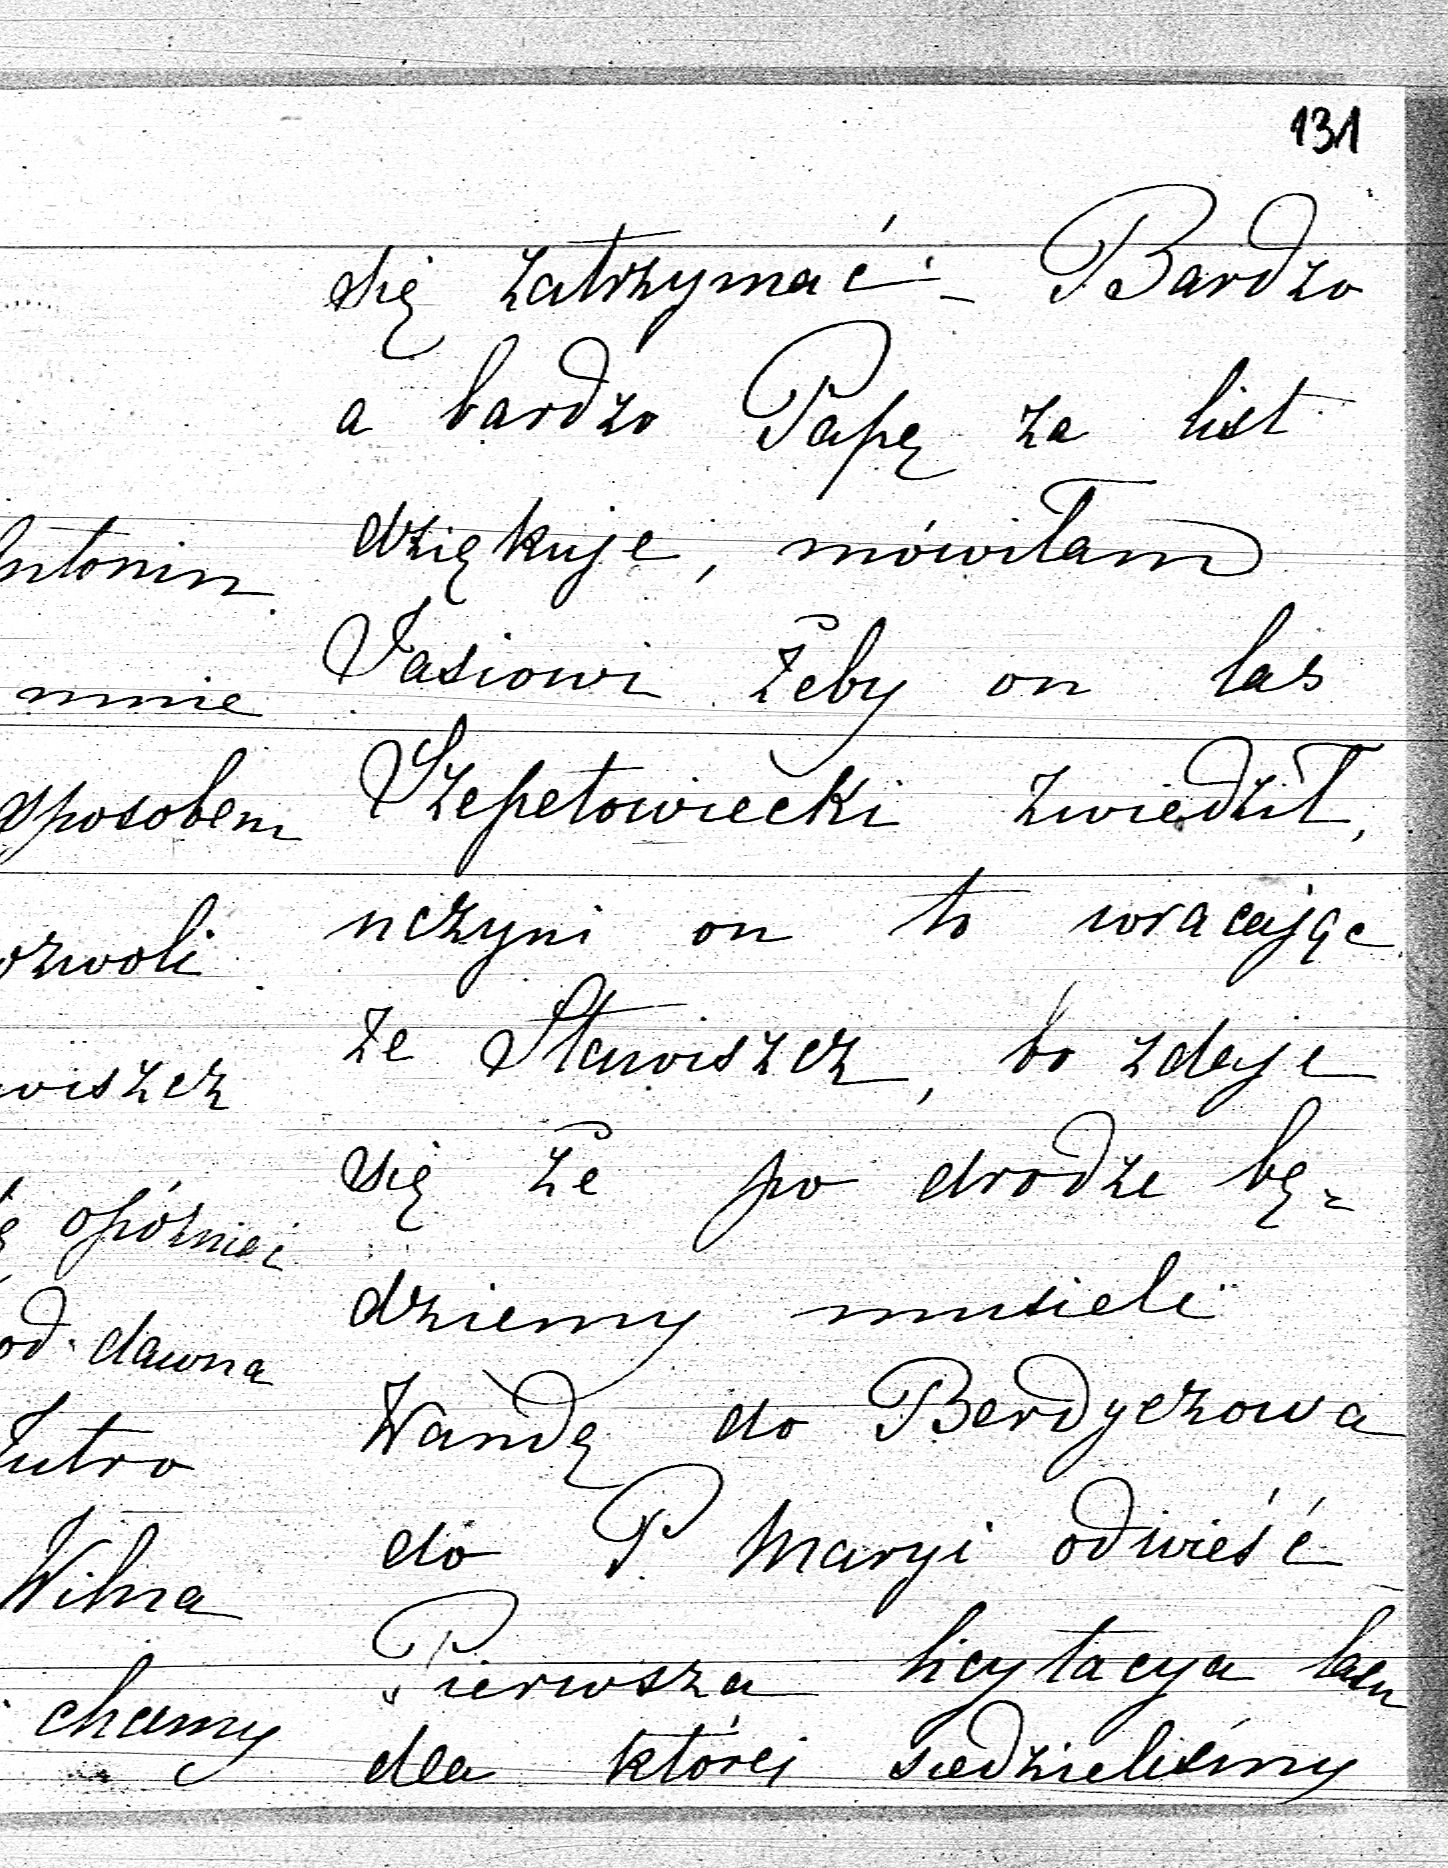 131
się zatrzymać. – Bardzo
a bardzo Papę za list
dziękuje, mówiłam
Jasiowi żeby on las
Szepetowiecki zwiedził,
uczyni on to wracając
ze Stawiszcz, bo zdaje
się że po drodze bę-
dziemy musieli
Wandę do Berdyczowa
do P. Maryi odwieść
Pierwsza licytacya lasu
dla której siedzieliśmy
ntonin
mnie
sposobem
ozwoli
wiszcz
opóźniei
od dawna
Jutro
Wilna
chamy